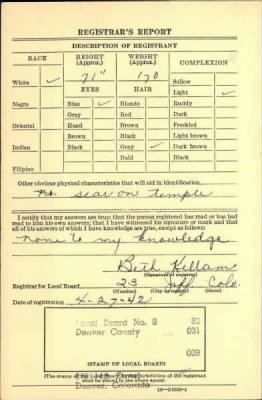 REGISTRAR'S REPORT
DESCRIPTION OF REGISTRANT
RACE HEIGHT (Approx.) WEIGHT (Approx.) COMPLEXION
White ✓ 71" 170 Sallow
EYES HAIR Light ✓
Negro Blue ✓ Blonde Ruddy
Gray Red Dark
Oriental Hazel Brown Freckled
Brown Black Light brown
Indian Black Gray ✓ Dark brown
Bald Black
Filipino
Other obvious physical characteristics that will aid in identification
scar on temple
I certify that my answers are true; that the person registered has read or has had
read to him his own answers; that I have witnessed his signature or mark and that
all of his answers of which I have knowledge are true, except as follows:
none to my knowledge
Beth Killam
(Signature of registrar)
Registrar for Local Board 23 Colo.
(Number) (City or county) (State)
Date of registration 4-27-42
Local Board No. 8 82
Denver County 031
009
(STAMP OF LOCAL BOARD)
(The stamp of the Local Board having jurisdiction of the registrant
shall be placed in the above space)
Denver, Colorado